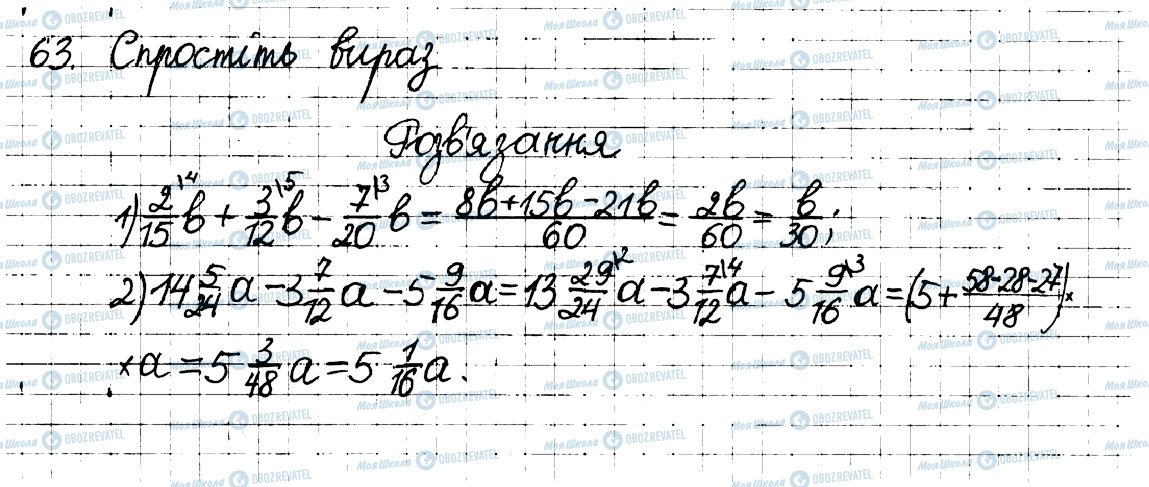 63. Спростіть вираз
Розв'язання
1) 2/15\4 b + 3/12\5 b - 7/20\3 b = (8b+15b-21b)/60 = 2b/60 = b/30;
2) 14 5/24 a - 3 7/12 a - 5 9/16 a = 13 29/24\2 a - 3 7/12\4 a - 5 9/16\3 a = (5 + (58-28-27)/48) ×
× a = 5 3/48 a = 5 1/16 a.
Моя Школа OBOZREVATEL